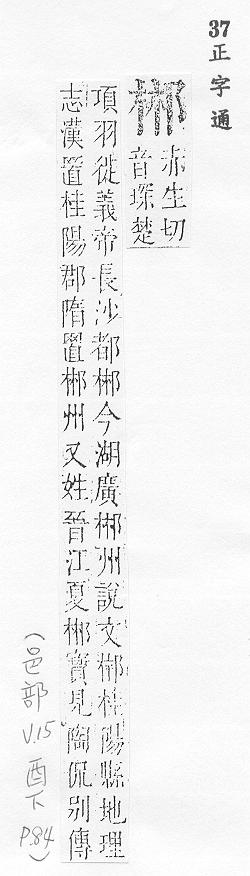 37 正字通
郴 赤生切
音琛楚
項羽徙義帝長沙都郴今湖廣郴州說文郴桂陽縣地理
志漢置桂陽郡隋置郴州又姓晉江夏郴寶見陶侃別傳
(邑部 V.15 酉下 P.84)